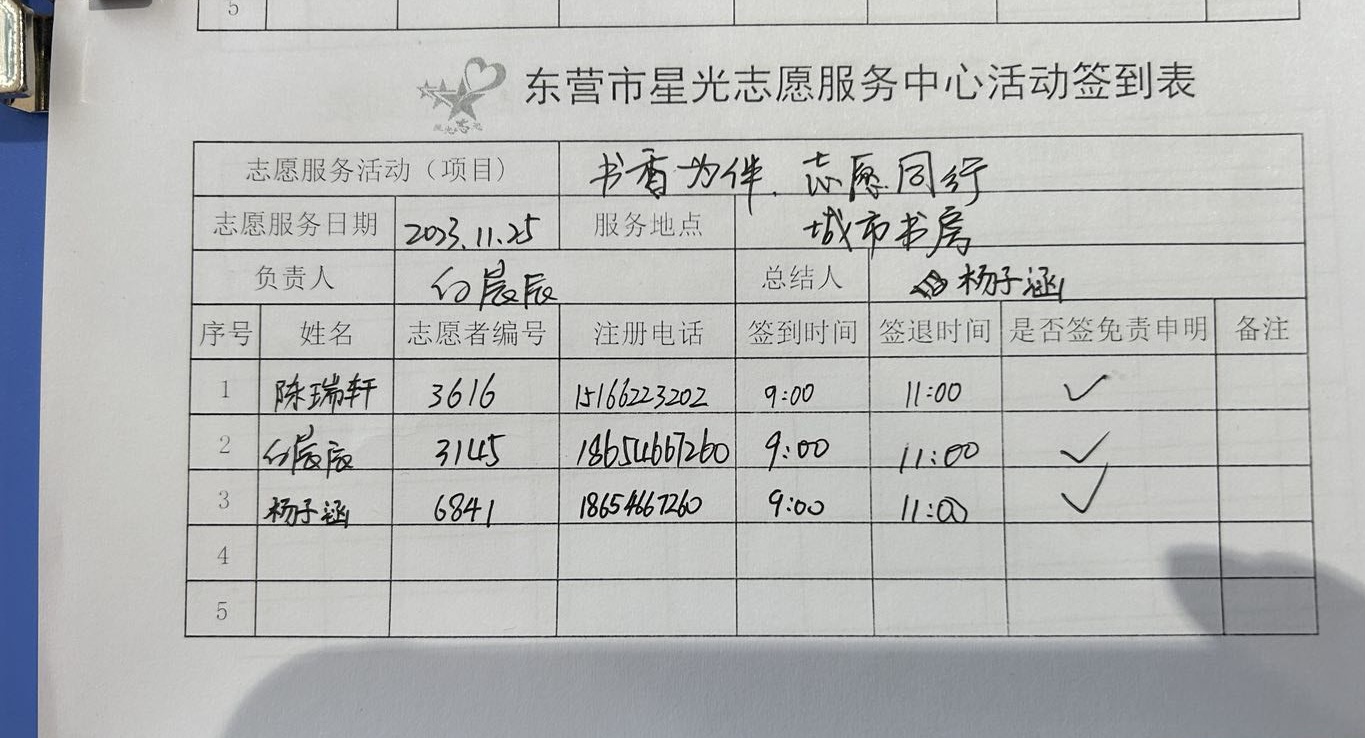 5
东营市星光志愿服务中心活动签到表
志愿服务活动（项目） 书香为伴. 志愿同行
志愿服务日期 2023.11.25 服务地点 城市书房
负责人 白晨辰 总结人 杨子涵
序号 姓名 志愿者编号 注册电话 签到时间 签退时间 是否签免责申明 备注
1 陈瑞轩 3616 15166223202 9:00 11:00 ✓
2 白晨辰 3145 18654667260 9:00 11:00 ✓
3 杨子涵 6841 18654667260 9:00 11:00 ✓
4
5